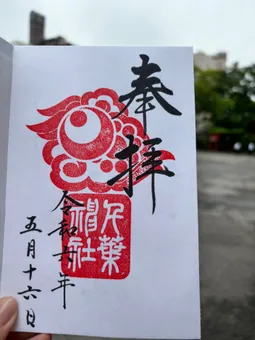 奉拝
千葉
神社
令和六年
五月十六日